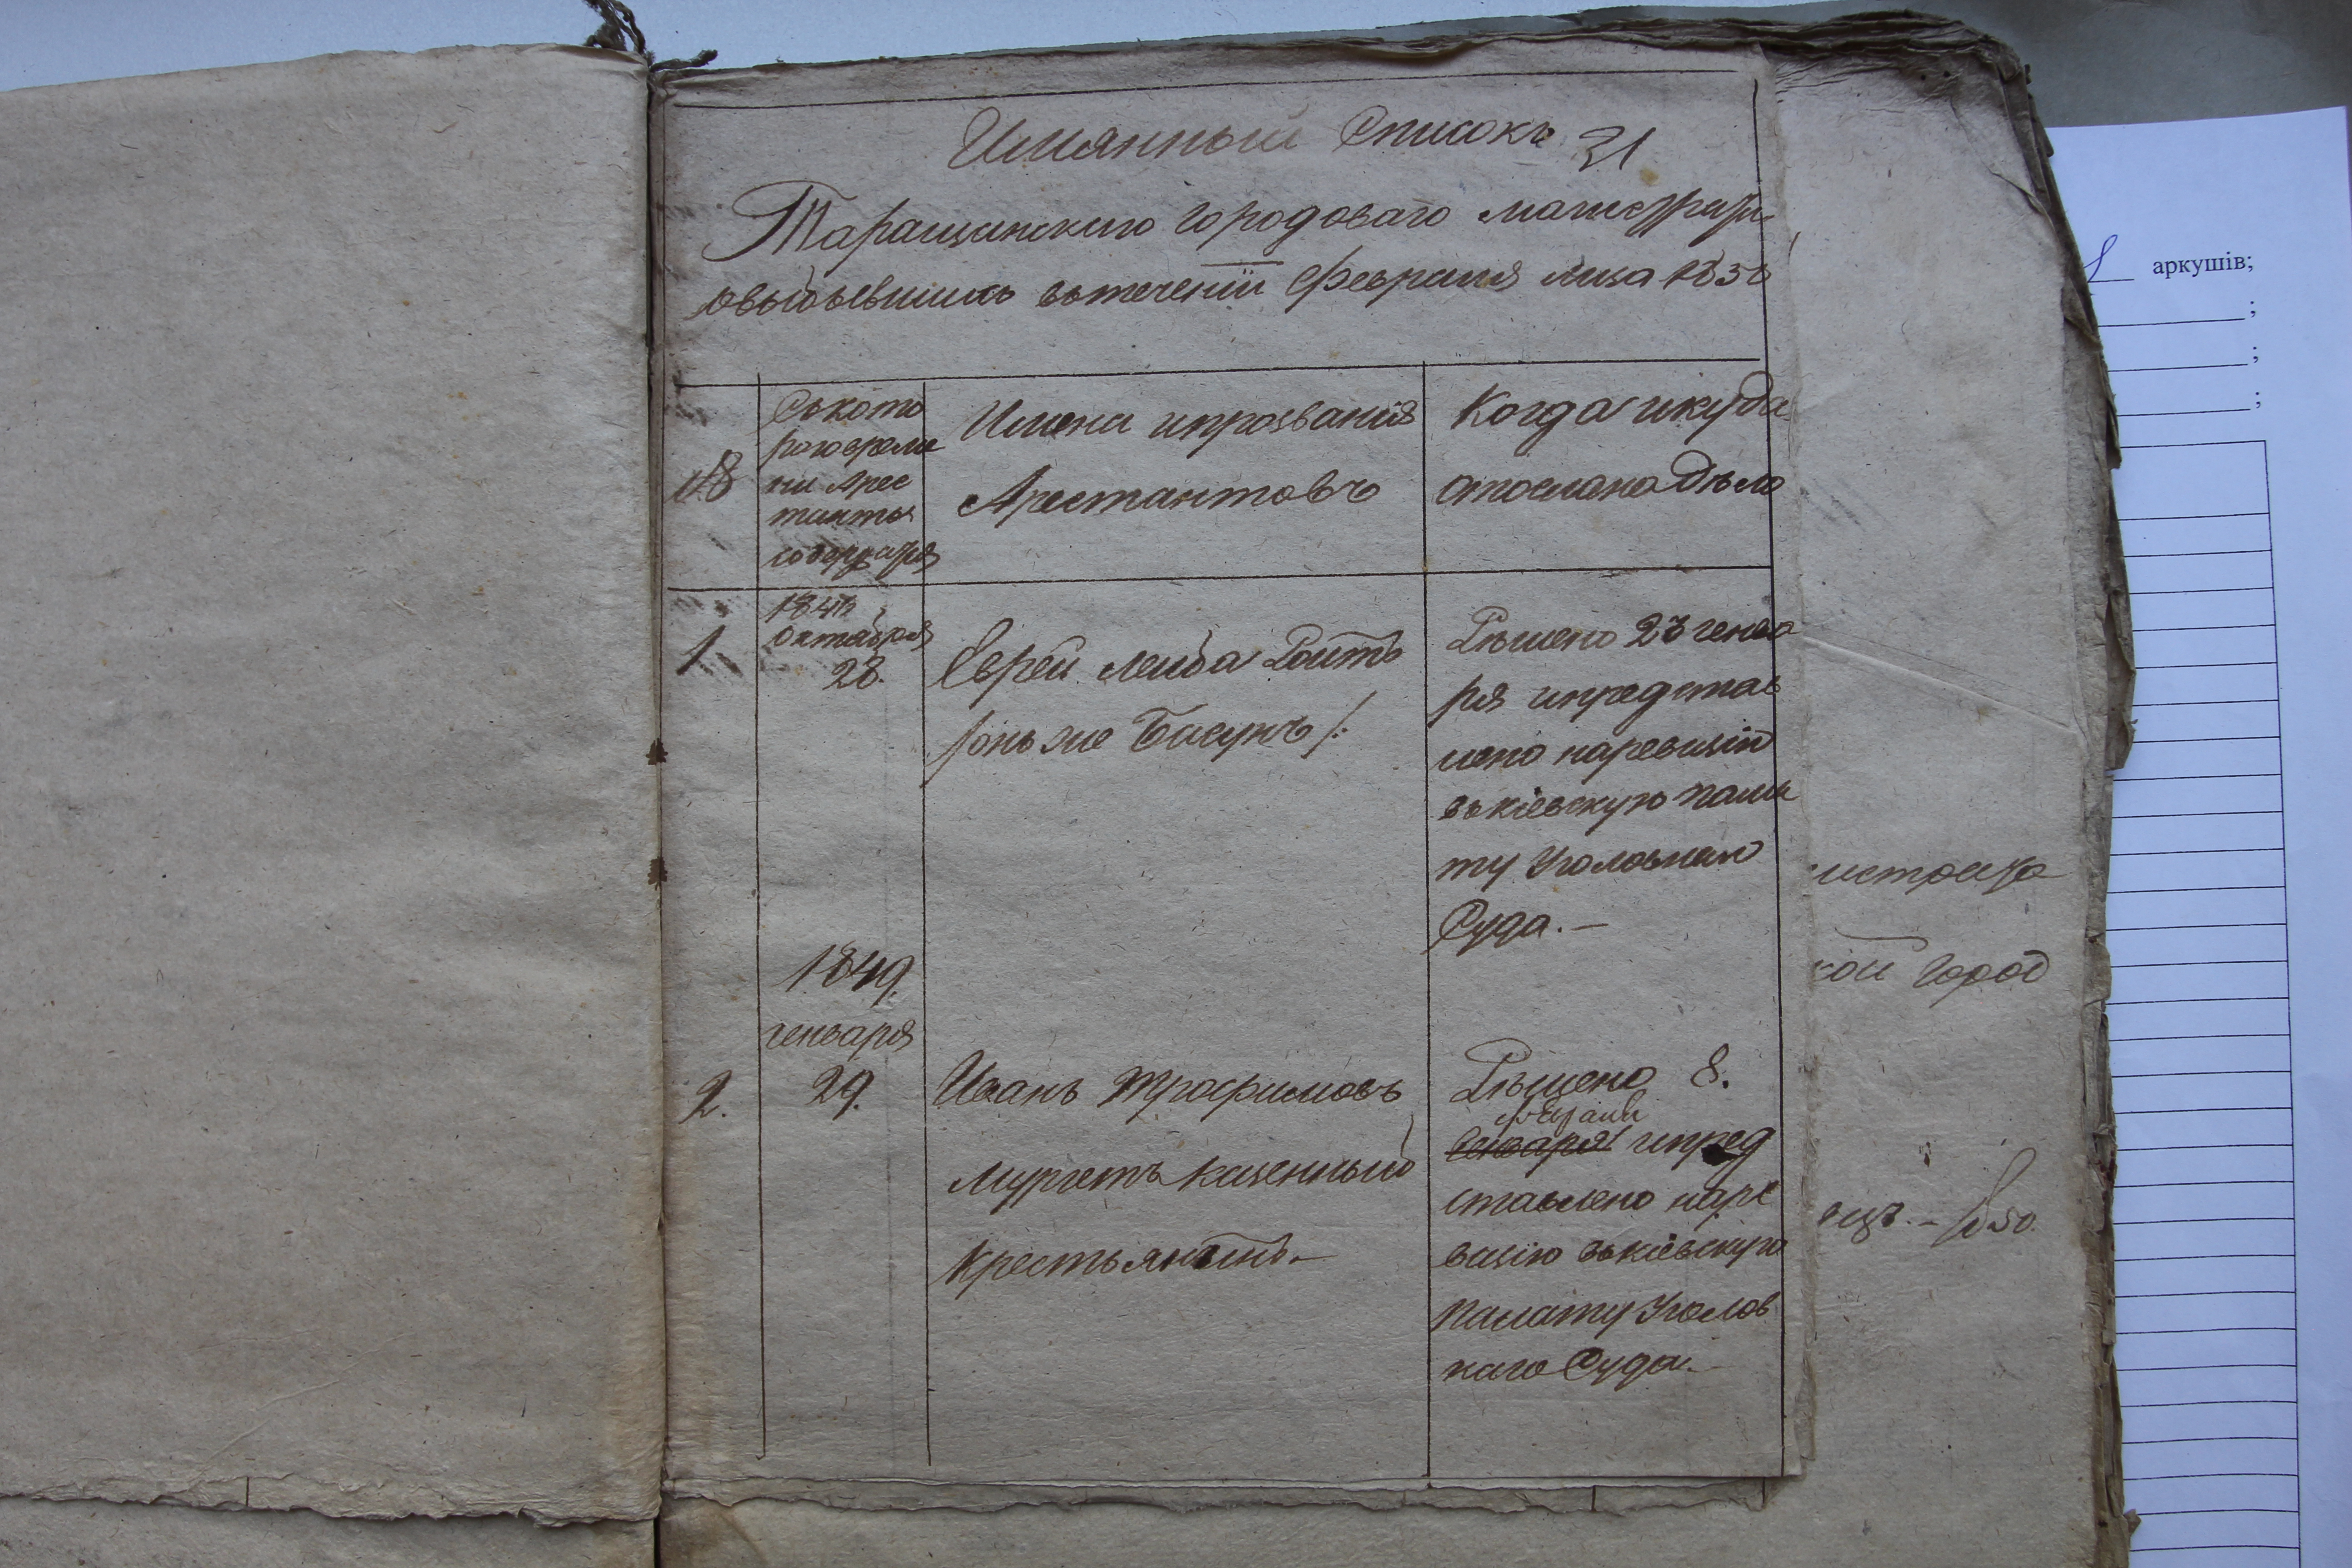 Имянный Списокъ 21
Таращанскаго Городоваго магистрата
овыбывшихъ втеченіи Февраля мца 185
№
Съкото
раговреме
ни Арес
танты
содержатся
Имена ипрозванія
Арестантовъ
Когда икуда
отослано дѣло
1
184
Октября
28.
Еврей Лейба Ройтъ
/онъ же Басунъ/:
Рѣшено 23 генва
ря ипредстав
лено наревизію
въкіевскую пала
ту Уголовнаго
Суда. —
1849.
генваря
2.
29.
Иванъ Трофимовъ
Мургетъ казенный
Крестьянинъ. —
Рѣшено 8.
февраля
Генваря ипред
ставлено наре
визію въкіевскую
Палату Уголов
наго Суда. —
аркушів;
;
;
;
истрата
кой Город